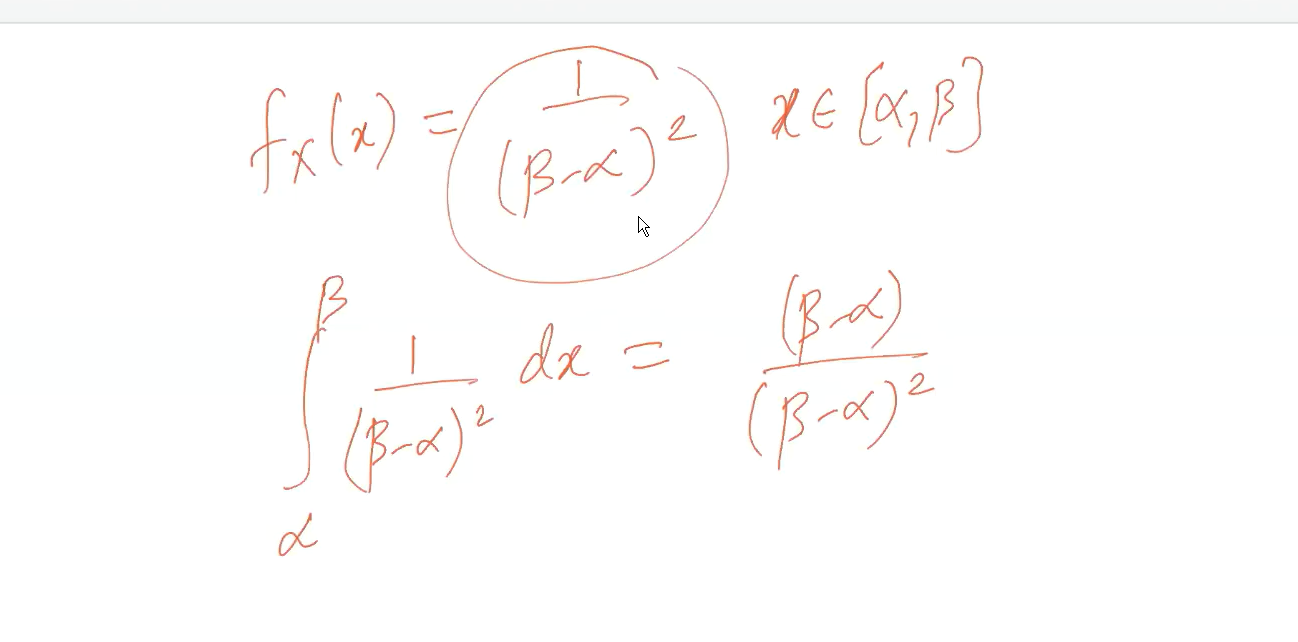 f_X(x) = 1/(β-α)² x ∈ [α, β]
∫_α^β 1/(β-α)² dx = (β-α)/(β-α)²